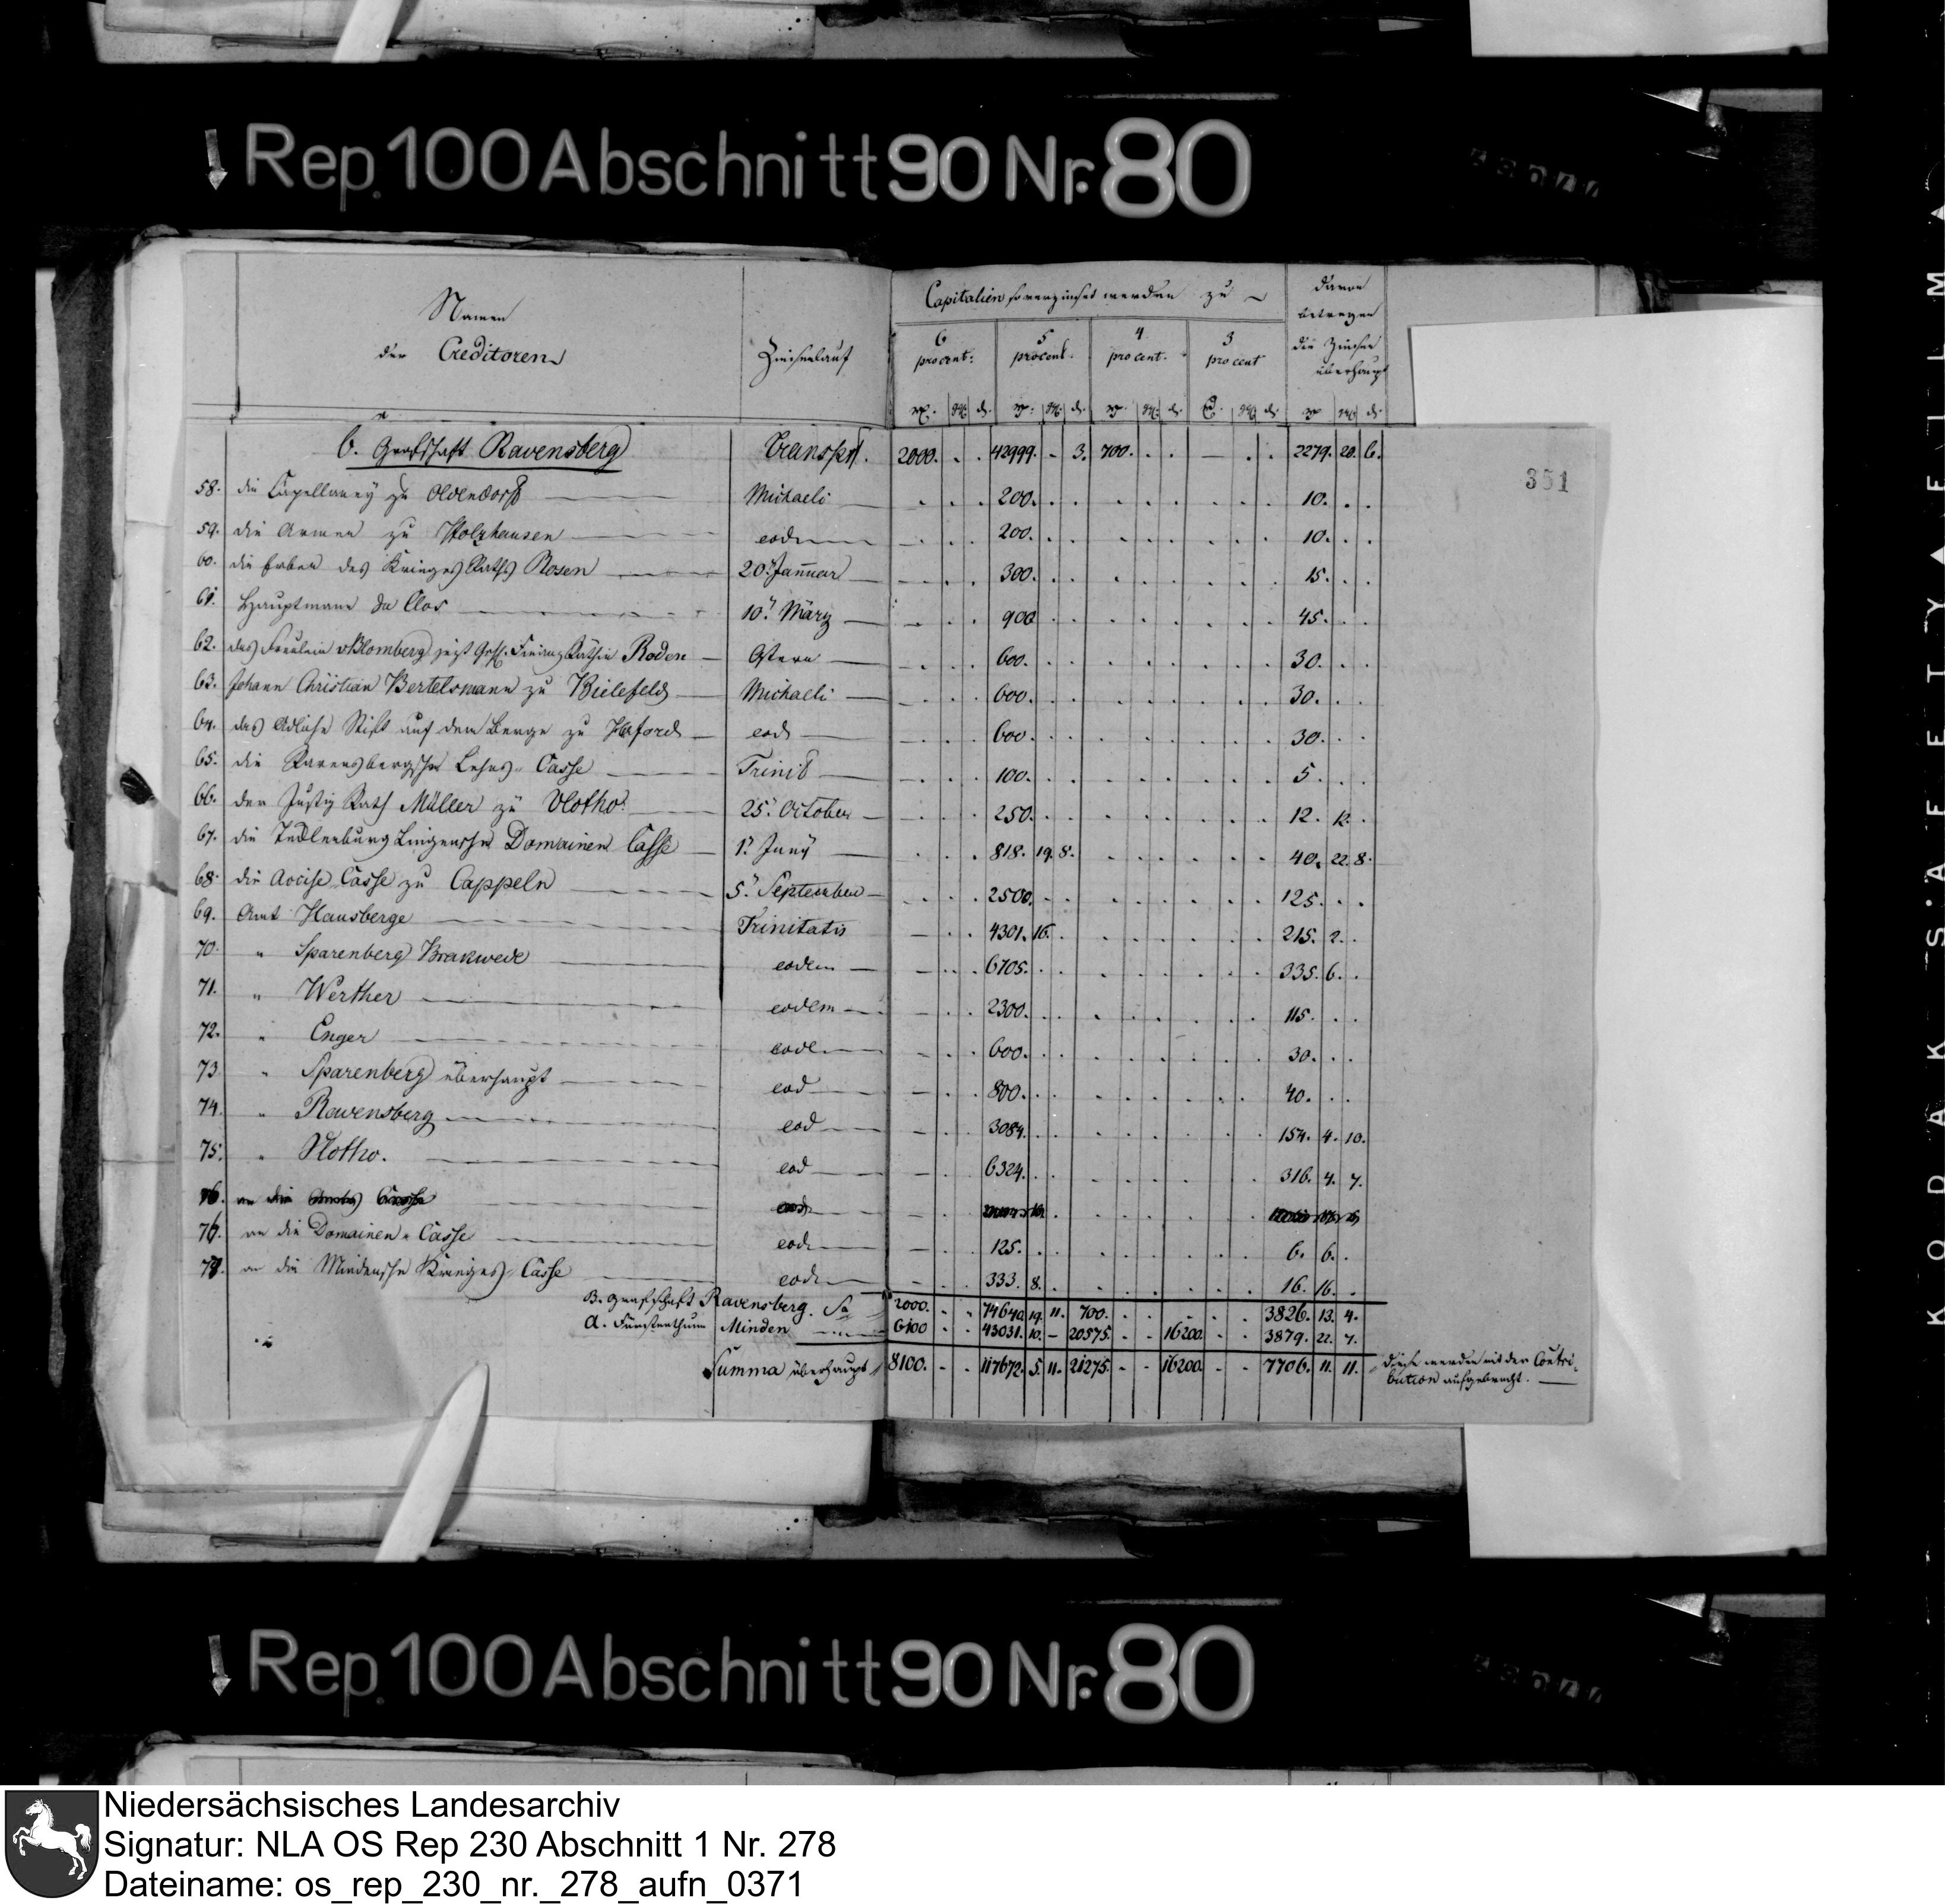 Rep. 100 Abschnitt 90 Nr. 80
Namen der Creditoren
Zinsenlauf
Capitalien so verzinset werden zu
6 procent: 5 procent. 4 pro cent. 3 pro cent
davon betragen die Zinsen überhaupt
b. Grafschaft Ravensberg Transpt. 2000. . . 42999. - 3. 700. . . — . . 2279. 20. 6.
351
58. die Capellaney zu Oldendorff Michaeli 200. 10.
59. die Armen zu Holzhausen eodem 200. 10.
60. die Erben des Krieges Raths Rosen 20. Januar 300. 15.
61. Hauptmann du Clos 10. März 900 45.
62. das Fräulein v Blomberg jezt Geh. Finanz Räthin Roden Ostern 600. 30.
63. Johann Christian Bertelsmann zu Bielefeld Michaeli 600. 30.
64. das Adliche Stift auf dem Berge zu Herford eod 600. 30.
65. die Ravensbergsche Lehns-Casse Trinit 100. 5.
66. der Justiz Rath Müller zu Vlotho 25. October 250. 12. 12.
67. die Tecklenburg Lingensche Domainen Casse 1. Juny 818. 19. 8. 40. 22. 8.
68. die Accise Casse zu Cappeln 5. September 2500. 125.
69. Amt Hausberge Trinitatis 4301. 16. 215. 2.
70. " Sparenberg Brakwede eodem 6705. 335. 6.
71. " Werther eodem 2300. 115.
72. " Enger eodem 600. 30.
73 " Sparenberg überhaupt eod 800. 40.
74. " Ravensberg eod 3084. 154. 4. 10.
75. " Vlotho. eod 6324. 316. 4. 7.
76. an die Domainen-Casse eod 125. 6. 6.
77. an die Mindensche Krieges-Casse eod 333. 8. 16. 16.
B. Grafschaft Ravensberg. Sa 2000. - - 74640. 19. 11. 700. . . . . . 3826. 13. 4.
A. Fürstenthum Minden 6100 - - 43031. 10. - 20575. - - 16200. - - 3879. 22. 7.
Summa überhaupt 8100. - - 117672. 5. 11. 21275. - - 16200. - - 7706. 11. 11. diese werden mit der Contri-
bution aufgebracht.
Rep. 100 Abschnitt 90 Nr. 80
KODAK SAFETY FILM
Niedersächsisches Landesarchiv
Signatur: NLA OS Rep 230 Abschnitt 1 Nr. 278
Dateiname: os_rep_230_nr._278_aufn_0371